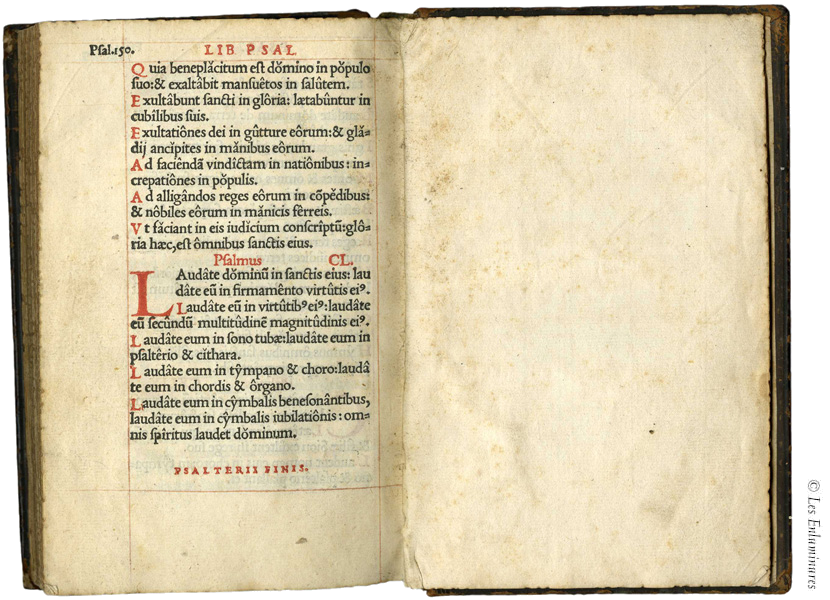 Psal.150. LIB PSAL
Quia beneplăcitum est dŏmino in pŏpulo
suo:& exaltâbit mansuêtos in salûtem.
Exultâbunt sancti in glôria: lætabûntur in
cubîlibus suis.
Exultatiônes dei in gûtture eôrum:& glă-
dij ancîpites in mănibus eôrum.
Ad faciéndā vindîctam in natiônibus: in-
crepatiônes in pŏpulis.
Ad alligândos reges eôrum in cōpĕdibus:
& nôbiles eôrum in mănicis fêrreis.
Vt făciant in eis iudîcium conscrîptū:glô-
ria hæc,est ômnibus sanctis eius.
Psalmus CL.
LAudâte dŏminū in sanctis eius: lau
dâte eū in firmamênto virtûtis eiꝰ.
Laudâte eū in virtûtibꝰ eiꝰ:laudâte
eū secûndū multitûdinē magnitûdinis eiꝰ.
Laudâte eum in sono tubæ:laudâte eum in
psaltêrio & cîthara.
Laudâte eum in tŷmpano & choro:laudâ
te eum in chordis & ôrgano.
Laudâte eum in cŷmbalis benesonântibus,
laudâte eum in cŷmbalis iubilatiônis: om-
nis spîritus laudet dŏminum.
PSALTERII FINIS.
© Les Enluminures